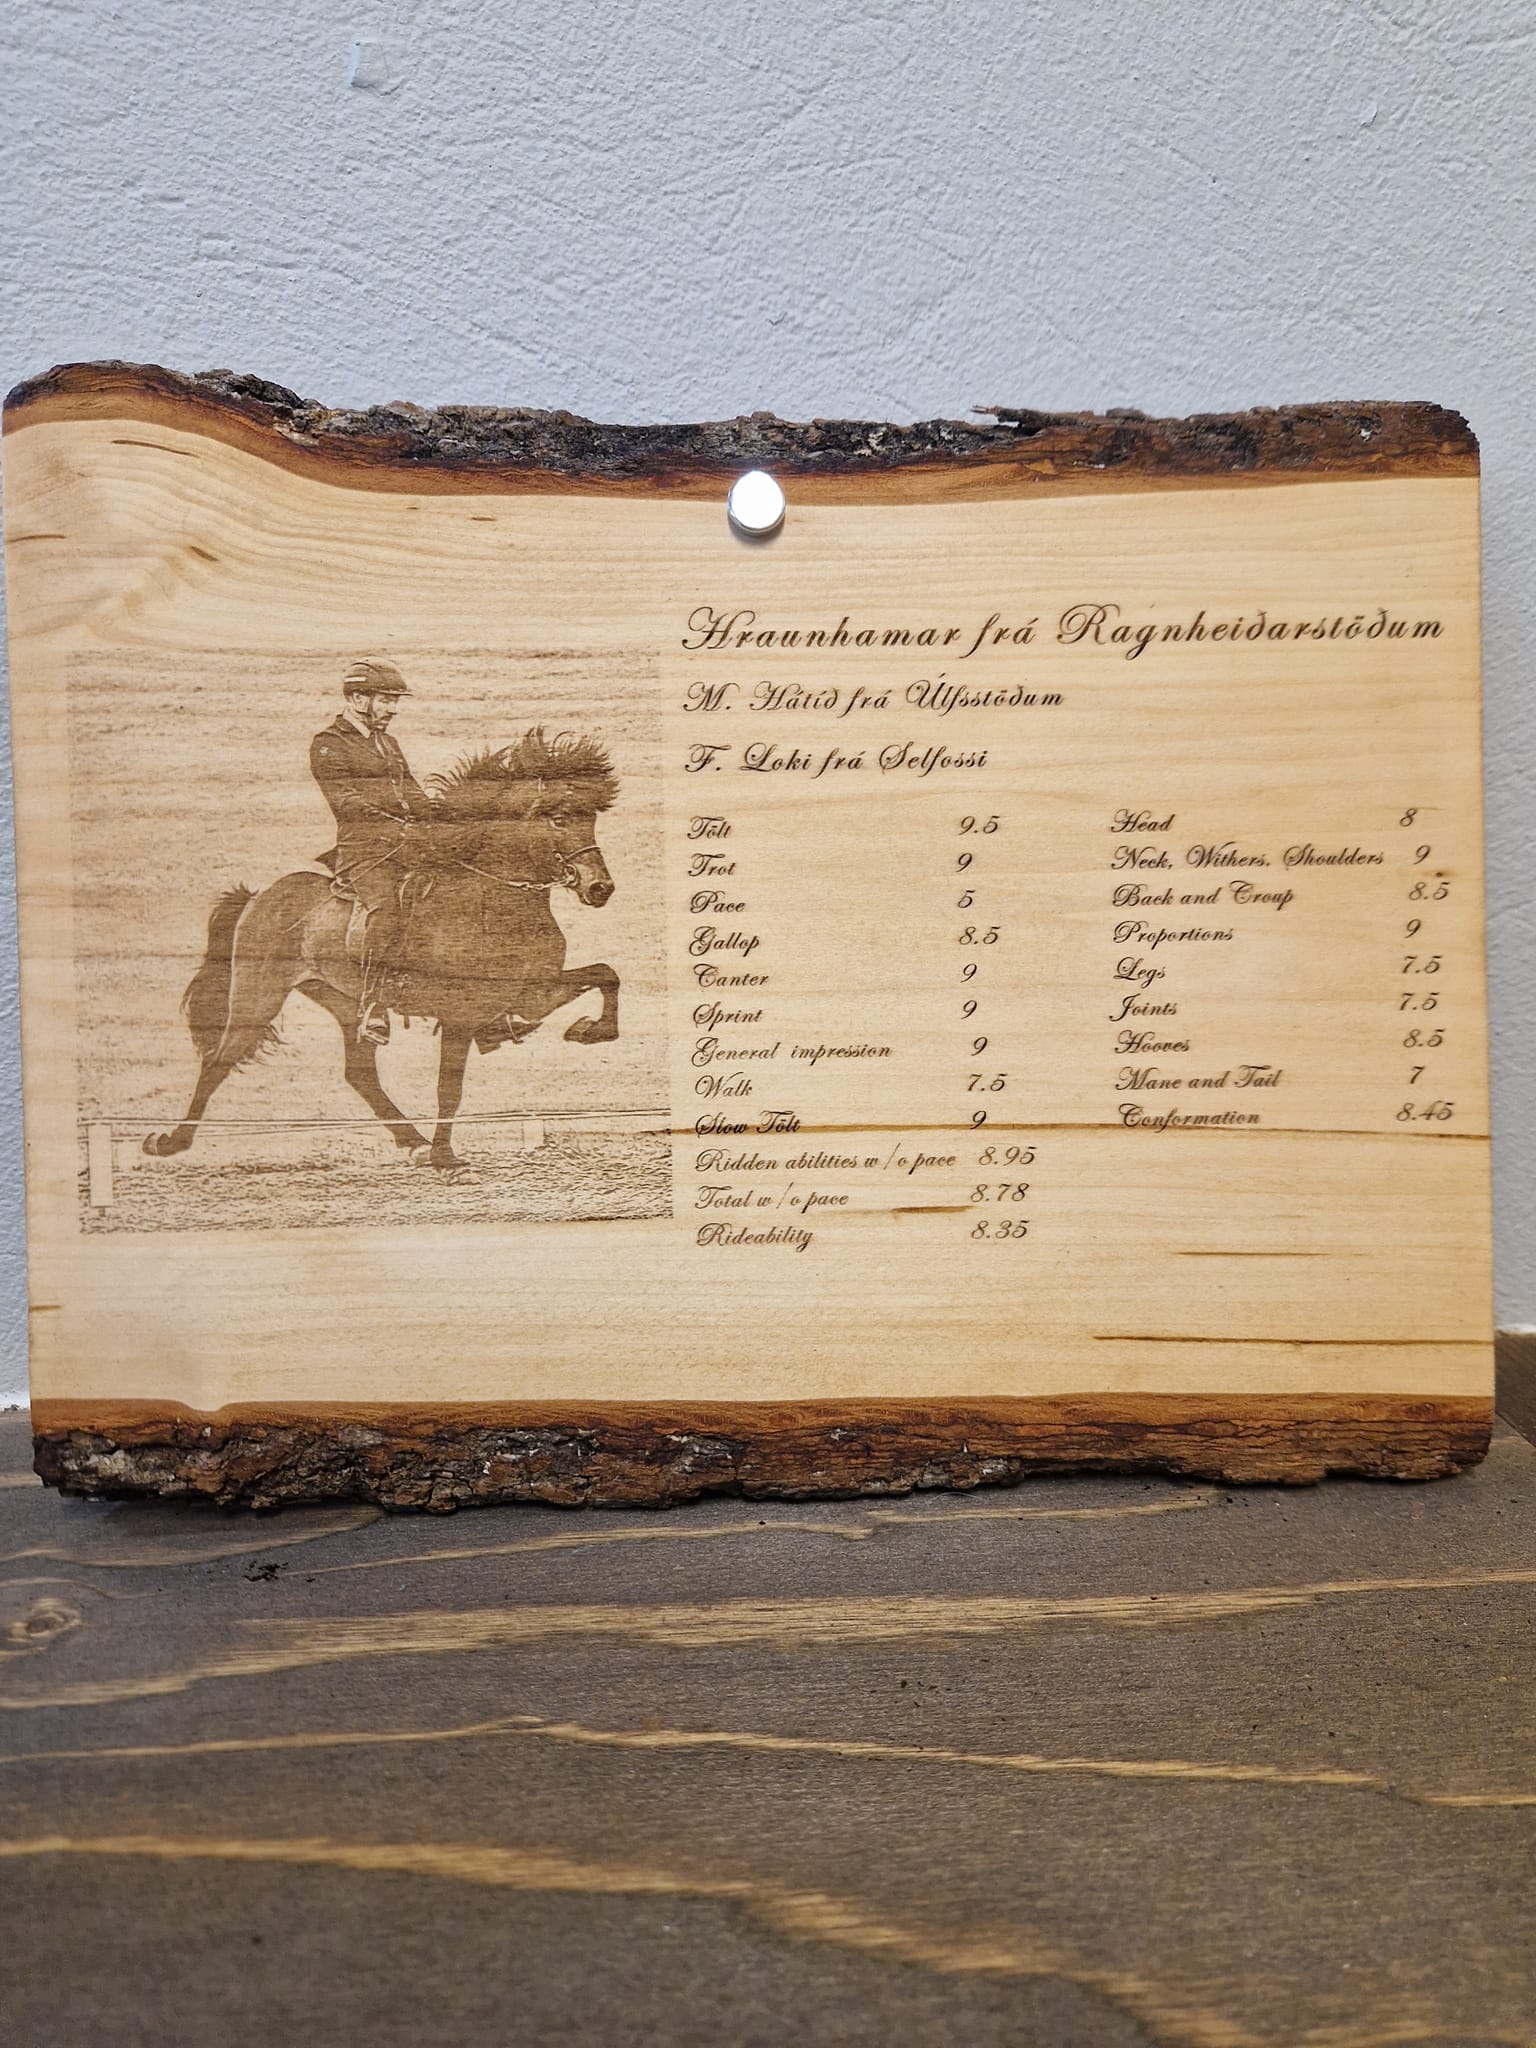 Hraunhamar frá Ragnheiðarstöðum
M. Hátíð frá Úlfsstöðum
F. Loki frá Selfossi
Tölt 9.5
Trot 9
Pace 5
Gallop 8.5
Canter 9
Sprint 9
General impression 9
Walk 7.5
Slow Tölt 9
Ridden abilities w/o pace 8.95
Total w/o pace 8.78
Rideability 8.35
Head 8
Neck, Withers, Shoulders 9
Back and Croup 8.5
Proportions 9
Legs 7.5
Joints 7.5
Hooves 8.5
Mane and Tail 7
Conformation 8.45